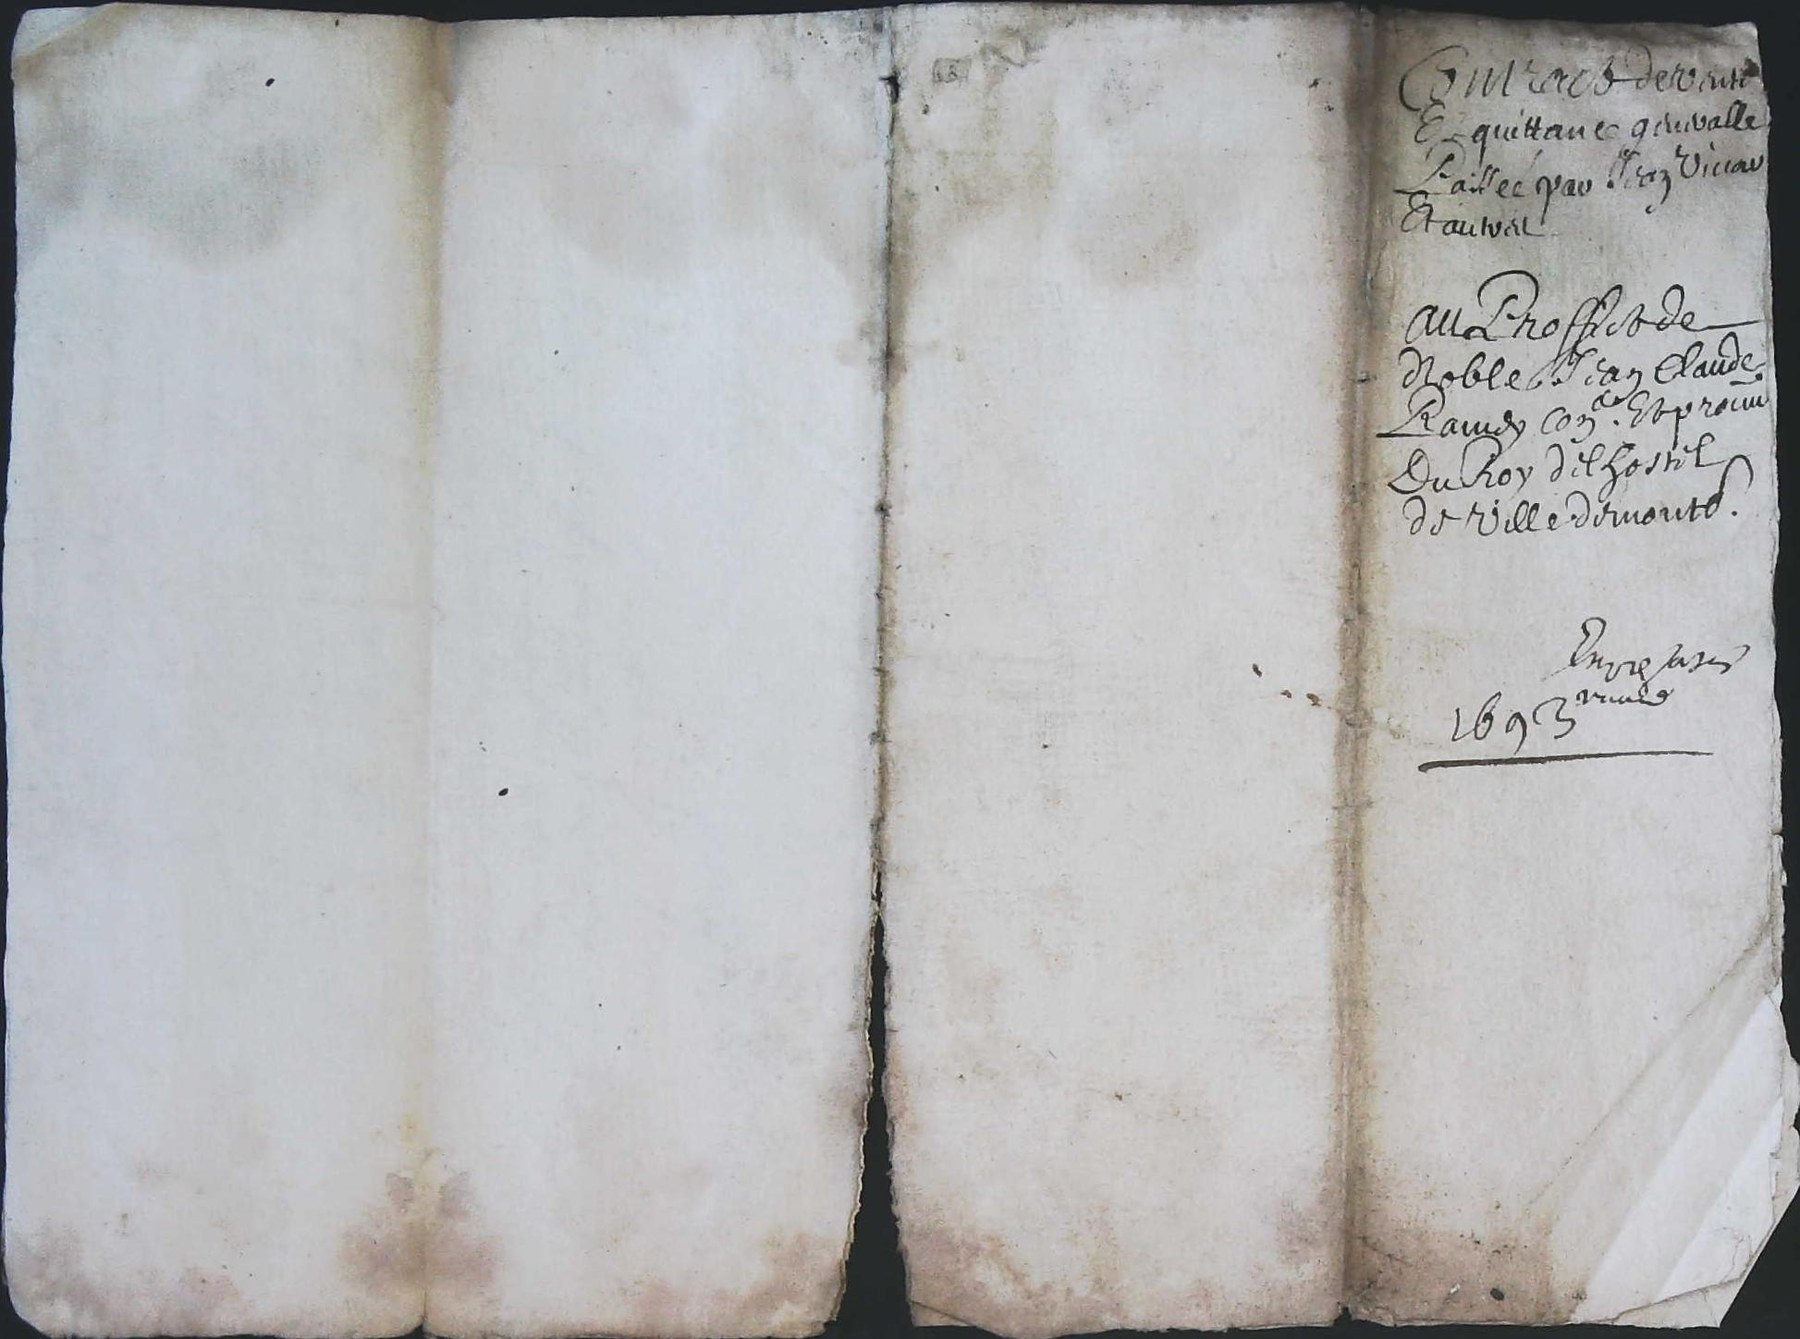 Contract de vente
Et quittance generalle
Passée par Jean Vicar
Et autres
Au Proffict de
Noble Jean Claude
Ramey con.er Et procur
Du Roy del hostel
de Ville de
1693